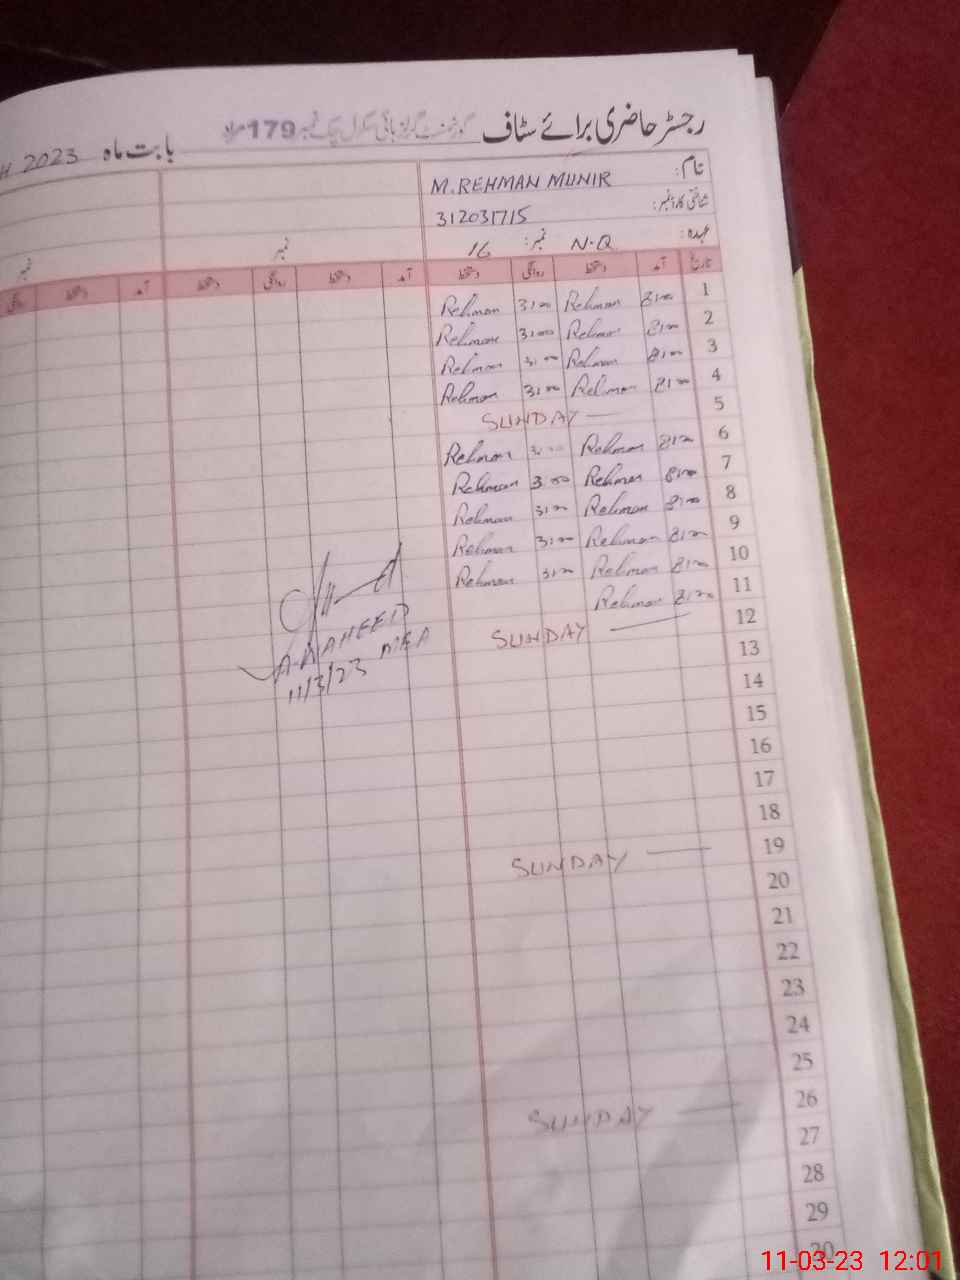 رجسٹر حاضری برائے سٹاف گورنمنٹ گرلز ہائی سکول چک نمبر 179 مراد
بابت ماہ H 2023
نام: M. REHMAN MUNIR
شناختی کارڈ نمبر: 312031715
عہدہ: N.Q نمبر: 16
نمبر
نمبر
تاریخ آمد دستخط روانگی دستخط آمد دستخط روانگی دستخط آمد دستخط روانگی
1 8:00 Rehman 3:00 Rehman
2 8:00 Rehman 3:00 Rehman
3 8:00 Rehman 3:00 Rehman
4 8:00 Rehman 3:00 Rehman
5 SUNDAY —
6 8:00 Rehman 3:00 Rehman
7 8:00 Rehman 3:00 Rehman
8 8:00 Rehman 3:00 Rehman
9 8:00 Rehman 3:00 Rehman
10 8:00 Rehman 3:00 Rehman
11 8:00 Rehman
12 SUNDAY —
13
14
15
16
17
18
19 SUNDAY —
20
21
22
23
24
25
26 SUNDAY —
27
28
29
30
A. WAHEED
MEA
11/3/23
11-03-23 12:01